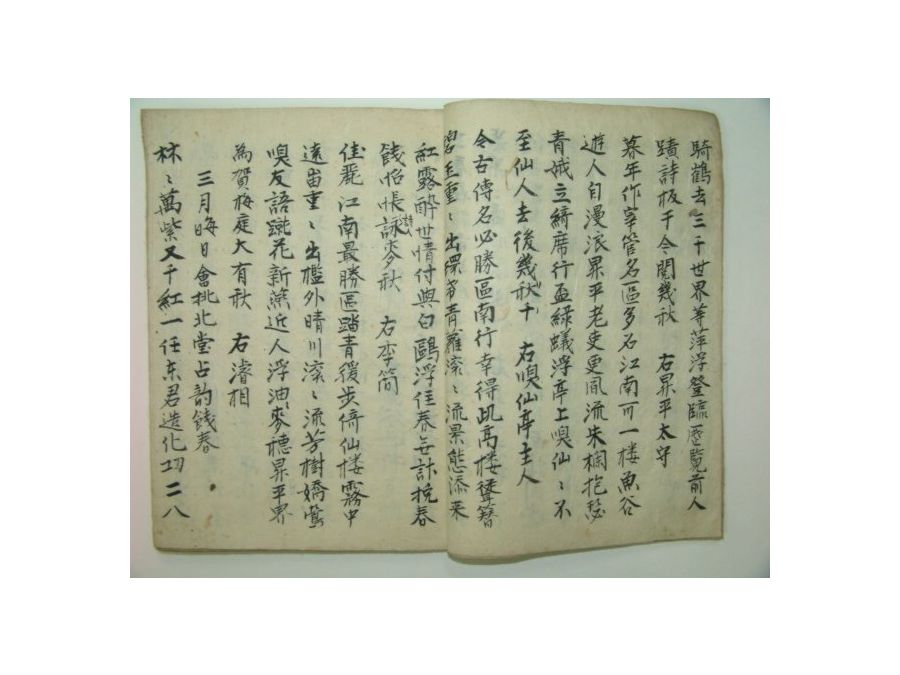 騎鶴去三千世界華萍浮登臨歷覽前人
蹟詩板于今閱幾秋 右昇平太守
暮年作宰管名區多名江南可一樓魚谷
遊人自漫浪昇平老吏更風流朱欄抱瑟
青娥立綺席行盃綠蟻浮亭上喚仙〻不
至仙人去後幾秋千 右喚仙亭主人
今古傳名必勝區南行幸得此高樓聳簪
碧玉重〻出深帶青羅滾〻流景態添來
紅露醉世情付與白鷗浮佳春無計挽春
餞怊悵詩詠麥秋 右李簡
佳麗江南最勝區踏青緩步倚仙樓霧中
遠峀重〻出檻外晴川滾〻流芳樹嬌鶯
喚友語蹴花新燕近人浮油〻麥穗昇平界
為賀梅庭大有秋 右濬相
三月晦日會北堂占韵餞春
林〻萬紫又千紅一任东君造化功二八